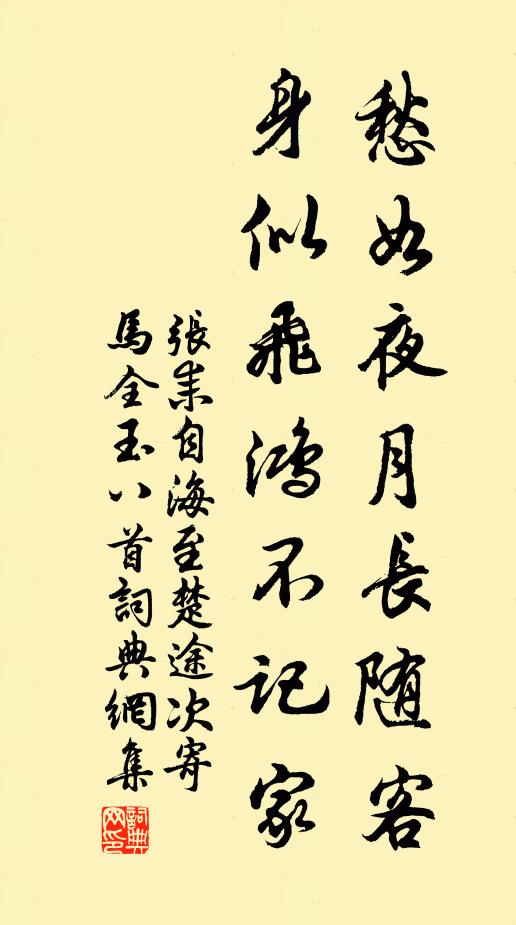 愁如夜月長随客
身似飛鴻不記家
張耒自海至楚途次寄
馬全玉八首詞典網集
詞典
网印